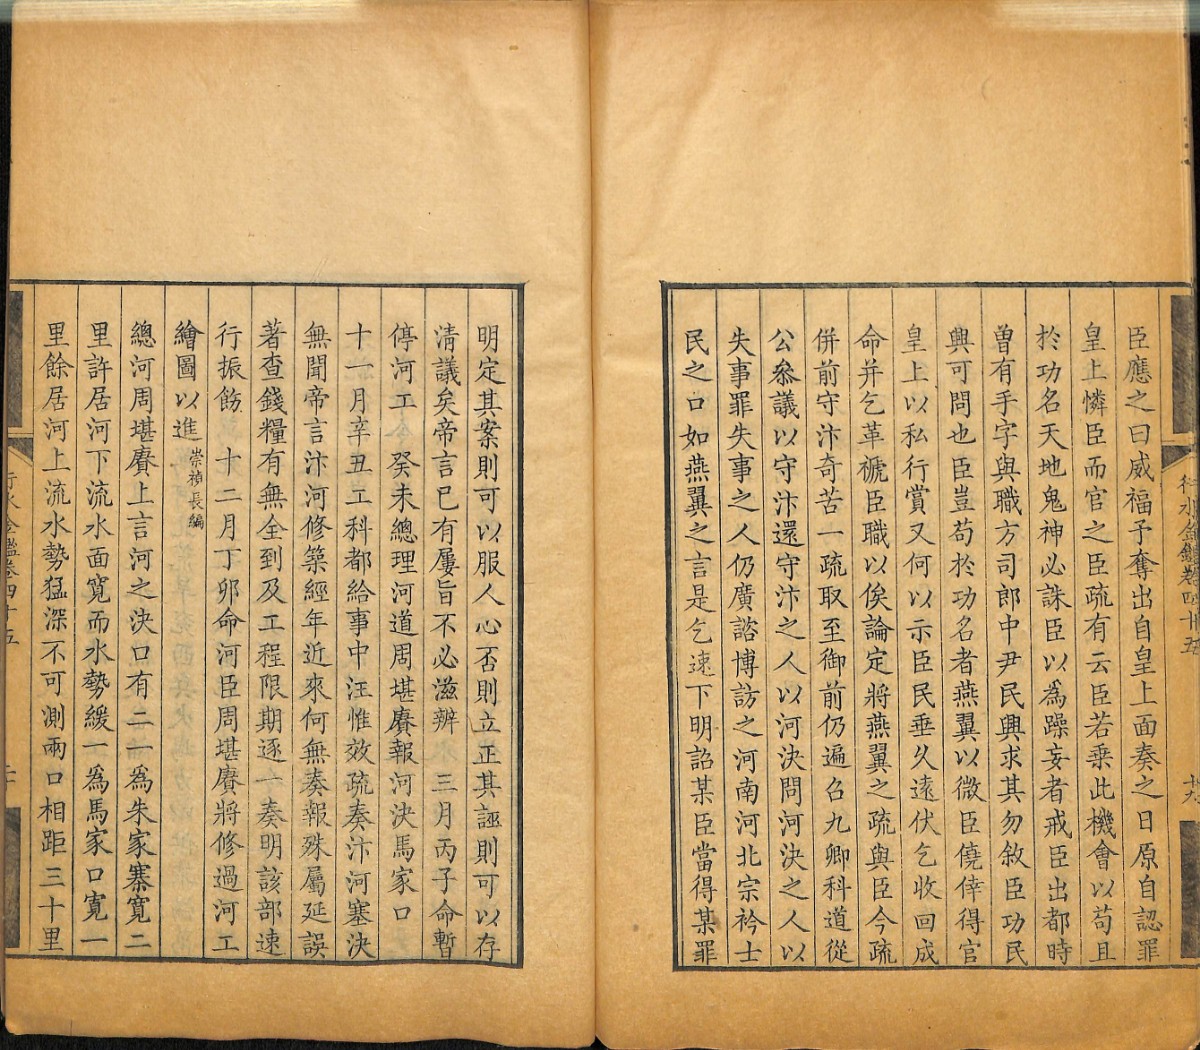 臣應之曰威福予奪出自皇上面奏之日原自認罪
皇上憐臣而官之臣疏有云臣若乘此機會以苟且
於功名天地鬼神必誅臣以為躁妄者戒臣出都時
曽有手字與職方司郎中尹民興求其勿敘臣功民
興可問也臣豈苟於功名者燕翼以微臣僥倖得官
皇上以私行賞又何以示臣民垂久遠伏乞收回成
命并乞革褫臣職以俟論定將燕翼之疏與臣今疏
併前守汴奇苦一疏取至御前仍遍召九卿科道從
公叅議以守汴還守汴之人以河決問河決之人以
失事罪失事之人仍廣諮博訪之河南河北宗衿士
民之口如燕翼之言是乞速下明詔某臣當得某罪
行水金鑑卷四十五
十九
明定其案則可以服人心否則立正其誣則可以存
清議矣帝言已有屢旨不必滋辨　三月丙子命暫
停河工　癸未總理河道周堪賡報河決馬家口
十一月辛丑工科都給事中汪惟效疏奏汴河塞決
無聞帝言汴河修築經年近來何無奏報殊屬延誤
著查錢糧有無全到及工程限期逐一奏明該部速
行振飭　十二月丁卯命河臣周堪賡將修過河工
繪圖以進崇禎長編
總河周堪賡上言河之決口有二一為朱家寨寬二
里許居河下流水面寬而水勢緩一為馬家口寬一
里餘居河上流水勢猛深不可測兩口相距三十里
行水金鑑卷四十五